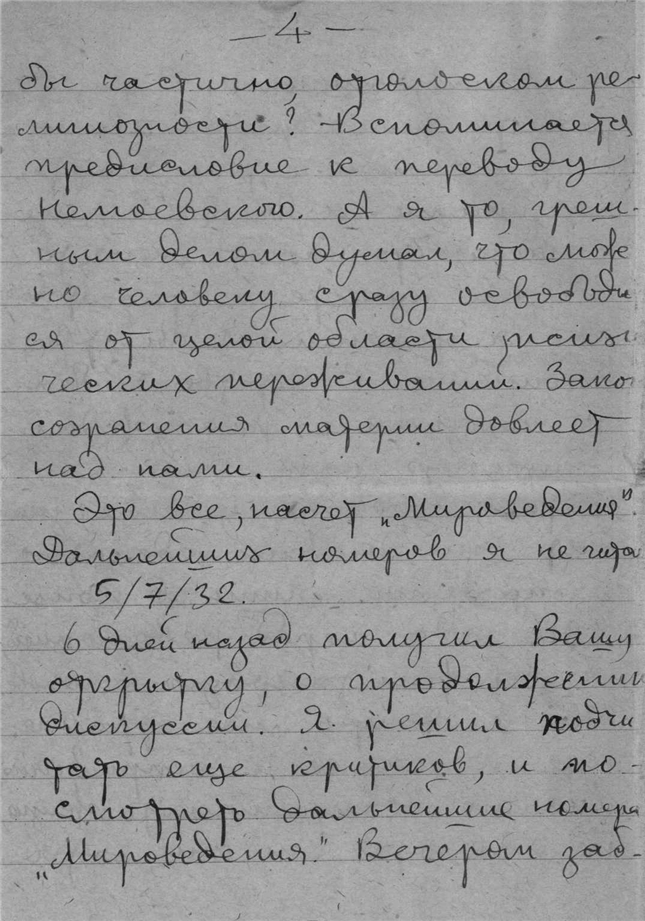 — 4 —
бы частично, отголоском ре-
лигиозности? Вспоминается
предисловие к переводу
Немоевского. А я то, греш-
ным делом думал, что мож
но человеку сразу освободи
ся от целой области психи
ческих переживаний. Зако
сохранения материи довлеет
над нами.
Это все, насчет „Мироведения".
Дальнейших номеров я не чита
5/7/32.
6 дней назад получил Вашу
открытку, о продолжении
дискуссии. Я решил подчи
тать еще критиков, и по-
смотреть дальнейшие номера
„Мироведения." Вечером заб-